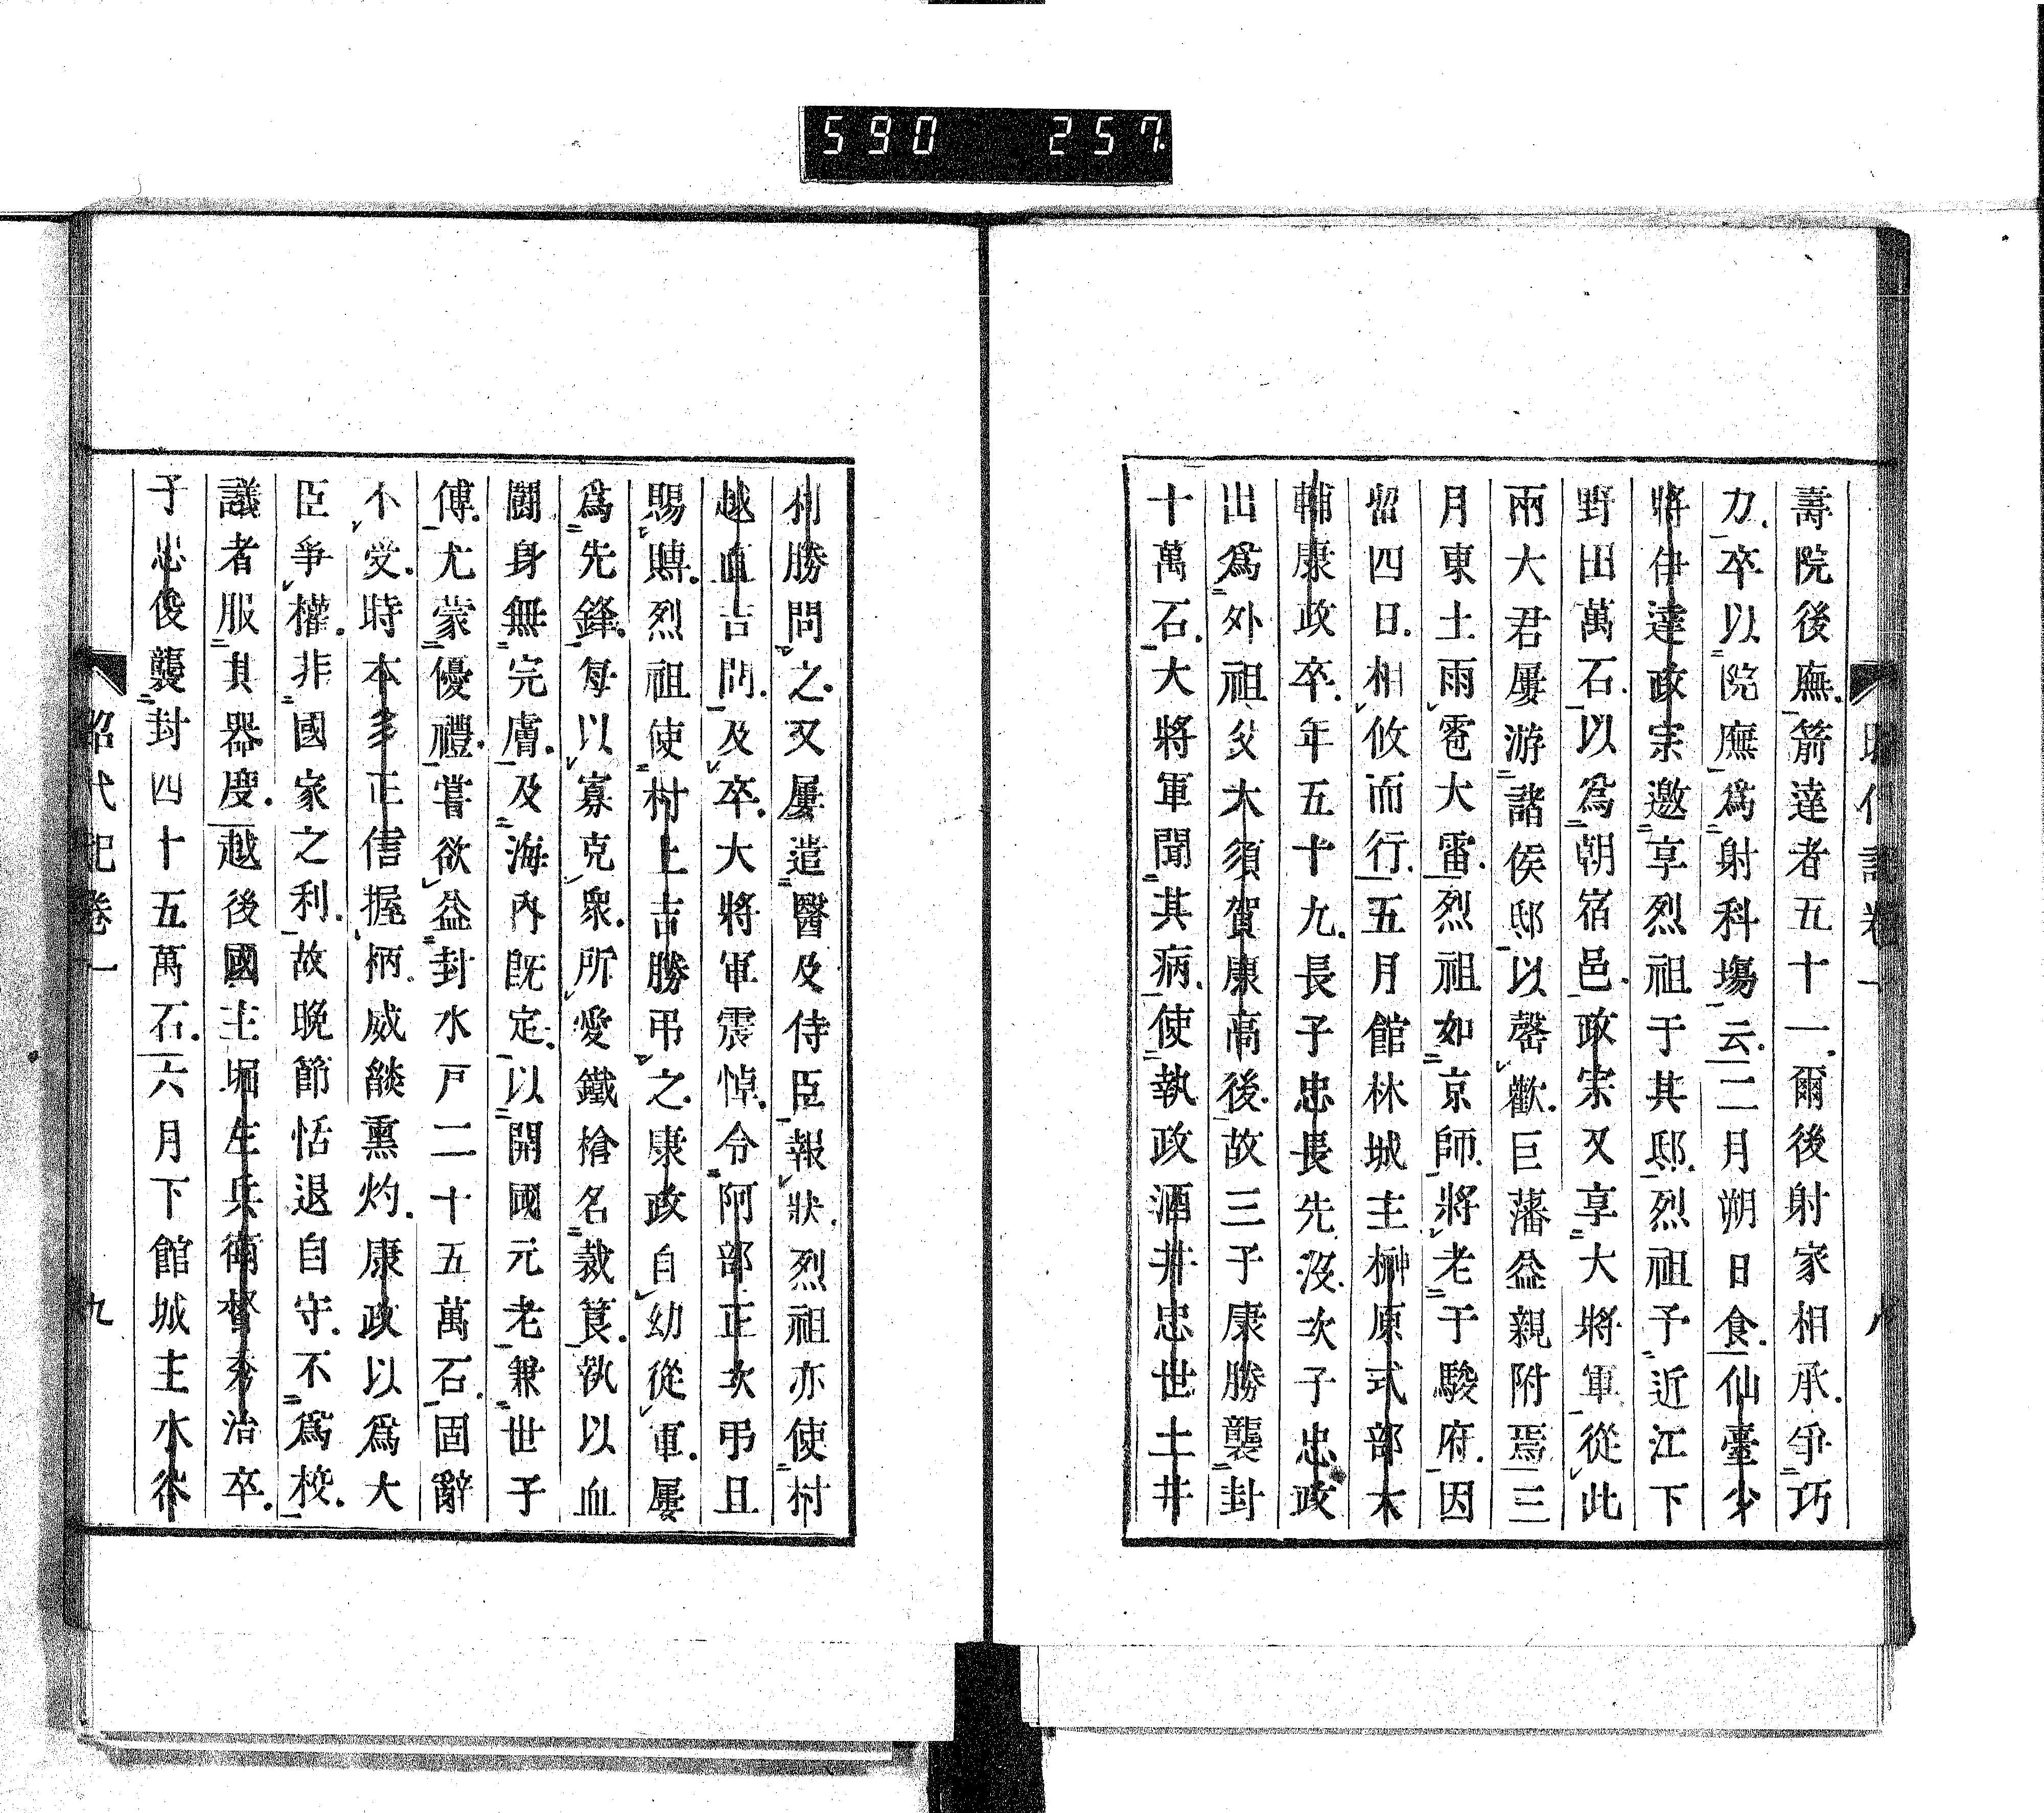 590 257
昭代記卷一 八
壽院後廡箭達者五十一爾後射家相承爭巧
力卒以院廡爲射科塲云二月朔日食仙臺少
將伊達政宗邀享烈祖于其邸烈祖予近江下
野田萬石以爲朝宿邑政宗又享大將軍從此
兩大君屢游諸侯邸以罄歡巨藩益親附焉三
月東土雨雹大雷烈祖如京師將老于駿府因
留四日相攸而行五月館林城主榊原式部大
輔康政卒年五十九長子忠長先沒次子忠政
出爲外祖父大須賀康高後故三子康勝襲封
十萬石大將軍聞其病使執政酒井忠世土井
利勝問之又屢遣醫及侍臣報狀烈祖亦使村
越直吉問及卒大將軍震悼令阿部正次弔且
賜賻烈祖使村上吉勝弔之康政自幼從軍屢
爲先鋒每以寡克衆所愛鐵槍名裁筧執以血
鬪身無完膚及海內既定以開國元老兼世子
傅尤蒙優禮嘗欲益封水戸二十五萬石固辭
不受時本多正信握柄威燄熏灼康政以爲大
臣爭權非國家之利故晩節恬退自守不爲校
議者服其器度越後國主堀左兵衛督秀治卒
子忠俊襲封四十五萬石六月下館城主水谷
昭代記卷一 九